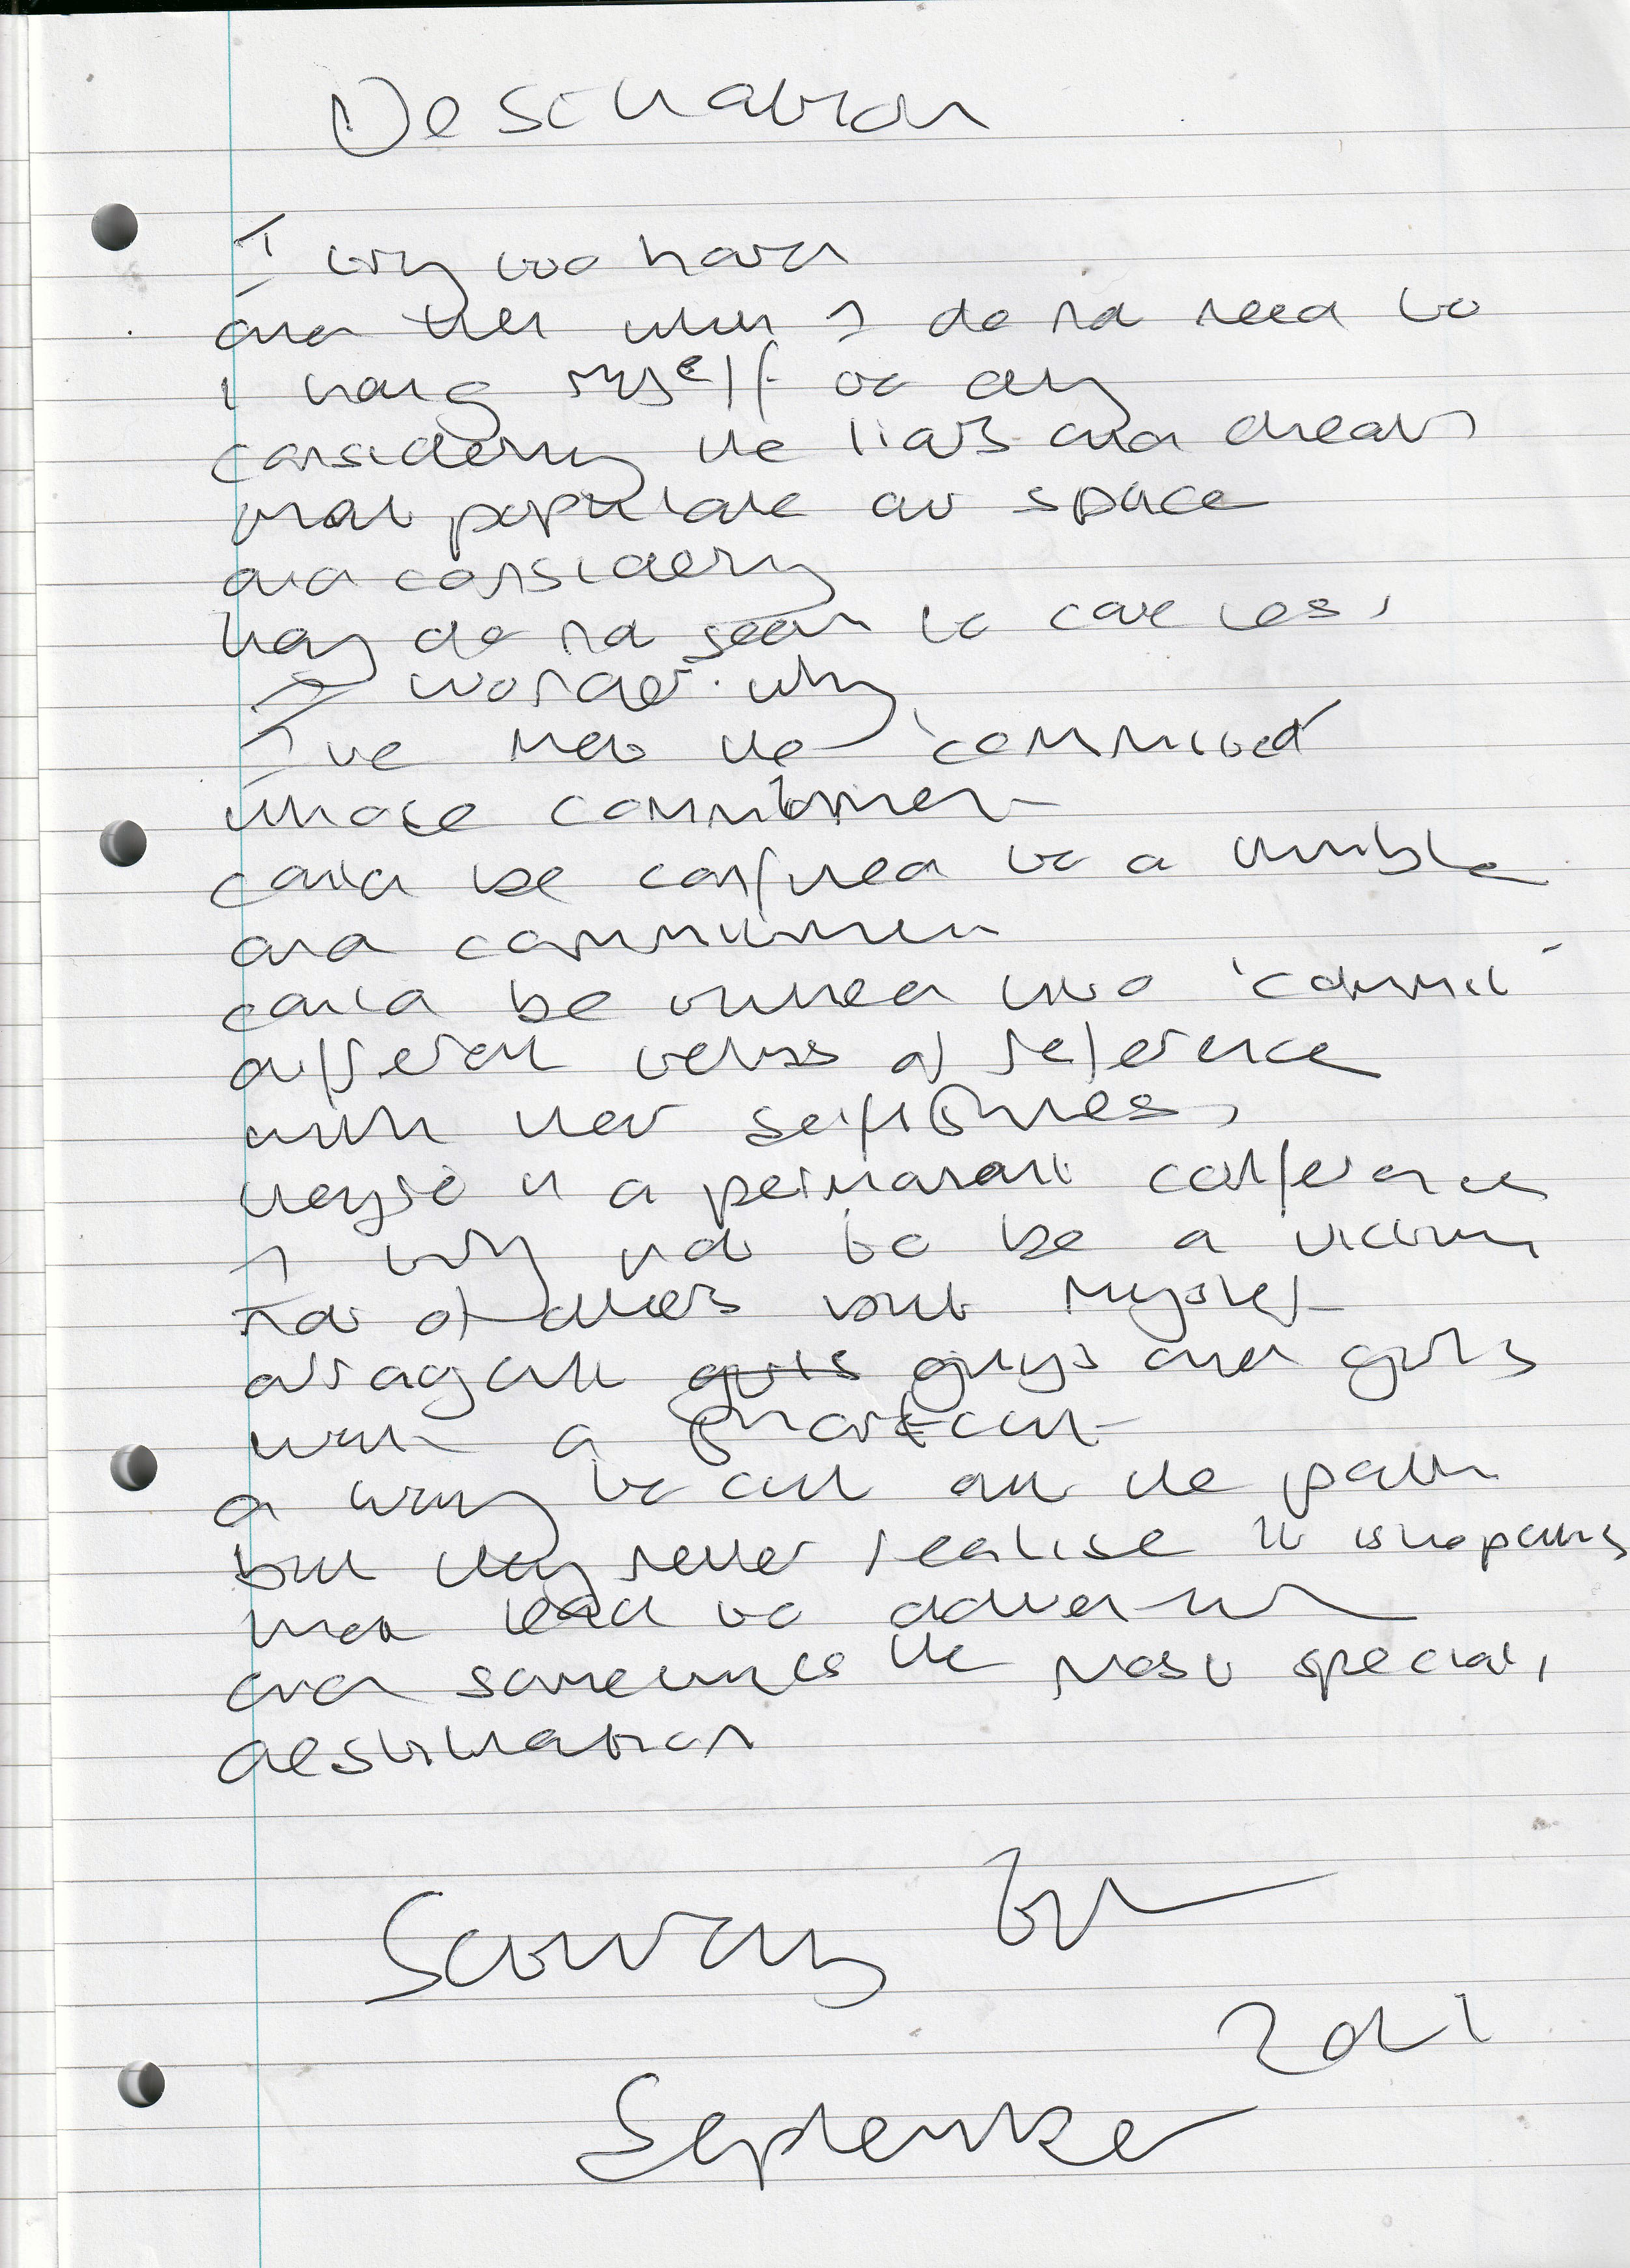 Destination
I try too hard
and then when I do not need to
I hang myself to dry
considering the liars and cheats
that populate our space
and considering
they do not seem to care less,
I wonder why
I've met the 'committed'
whose commitment
could be confined to a thimble
and commitment
could be turned into 'commit'
different terms of reference
with their selfishness,
they're in a permanent conference
I try not to be a victim
not of others but myself
arrogant guys and girls
with a shortcut
a way to cut out the path
but they never realise it is the paths
that lead to adventure
and sometimes the most special,
destination
2021
September